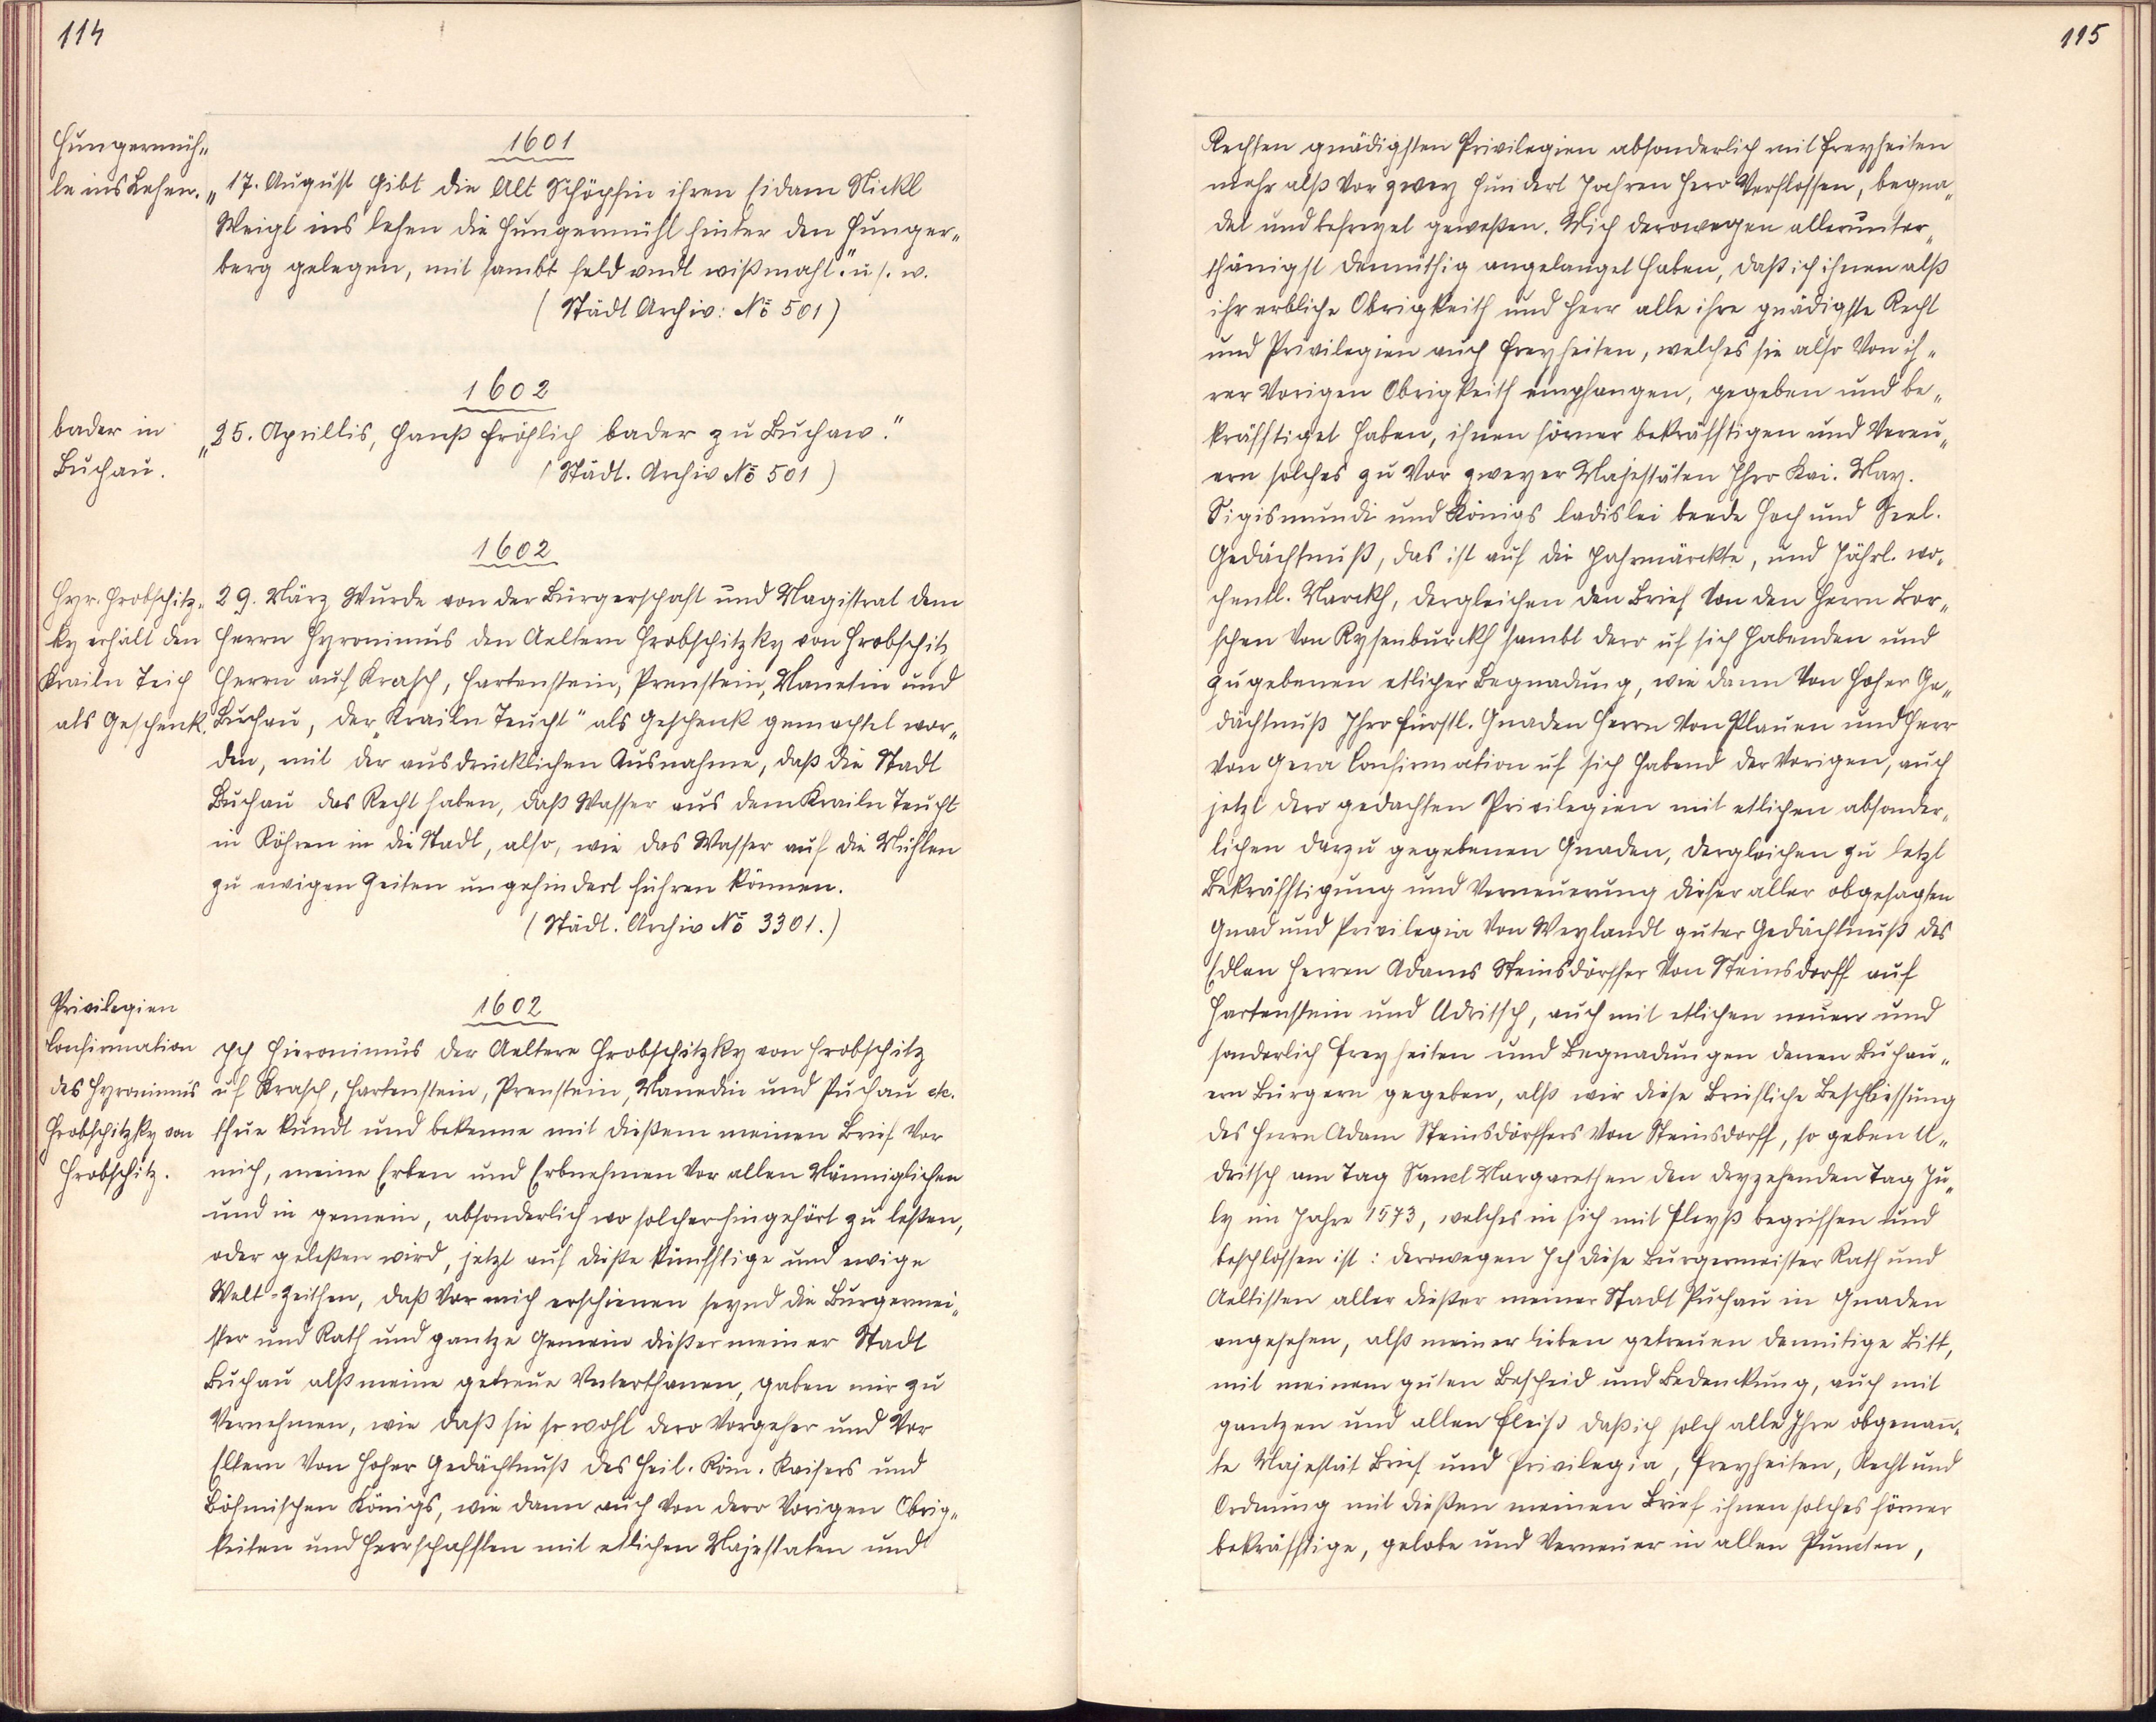 114
Hungermüh„
le ins Lehen.
1601
„17. August Gibt die Alt Schöpfin ihren Eidam Nickl
Weigl ins lehen die Hungermühl hinter den Hunger„
berg gelegen, mit sambt feld vndt wißmaht." u s. w.
(Städt Archiv: No 501)
1602
bader in
Buchau.
„25. Aprillis, Hanß Fröhlich bader zu Buchaw."
(Städt. Archiv No 501)
1602
Hyr. Hrobschitz„
ky erhält den
Krailn Teich
als Geschenk.
29. März Wurde von der Bürgerschaft und Magistrat dem
Herrn Hyronimus den Aeltern Hrobschitzky von Hrobschitz
Herrn auf Krasch, Hartenstein, Prenstein, Manetin und
Buchau, der „Krailn Teucht" als Geschenk gemachtet wor„
den, mit der ausdrücklichen Ausnahme, daß die Stadt
Buchau das Recht haben, daß Wasser aus dem Krailn Teucht
in Röhren in die Stadt, also, wie das Wasser auf die Mühlen
zu ewigen Zeiten ungehindert führen können.
(Städt. Archiv No 3301.)
1602
Privilegien
Confirmation
des Hyronimus
Hrobschitzky von
Hrobschitz.
Ich Hieronimus der Aeltere Hrobschitzky von Hrobschitz
uf Krasch, Hartenstein, Prenstein, Manedin und Puchau etc.
thue kundt und bekenne mit dießem meinen Brief Vor
mich, meine Erben und Erbnehmen Vor allen Männiglichen
und in gemein, absonderlich wo solcher hingehört zu leßen,
oder geleßen wird, jetzt auf dieße künfftige und ewige
Welt-Zeithen, daß Vor mich erschienen seynd die Burgermei„
ster und Rath und gantze Gemein dießer meiner Stadt
Buchau alß meine getreue Unterthanen, gaben mir zu
Vernehmen, wie daß sie so wohl dero Vorgeher und Vor
Eltern Von Hoher Gedächtnuß des Heil. Röm. Kaisers und
Böhmischen Königs, wie dann auch Von dero Vorigen Obrig„
keiten und Herrschafften mit etlichen Majestaten und
115
Rechten gnädigsten Privilegien absonderlich mit Freyheiten
mehr alß Vor zwey Hundert Jahren Hero Verflossen, begna„
det und befreyet geweßen. Mich derowegen allerunter„
thänigst demüthig angelanget haben, daß ich ihnen alß
ihr erbliche Obrigkeith und Herr alle ihre gnädigste Recht
und Privilegien auch Freyheiten, welches sie also Von ih„
rer Vorigen Obrigkeith empfangen, gegeben und be„
kräfftiget haben, ihnen förner bekräfftigen und Vereu„
ern solches zu Vor zweyer Majestäten Ihro Kai. May.
Sigismundi und Königs ladislei beede Hoch und Seel.
Gedächtnuß, das ist auf die Jahrmärckte, und Jährl. wo„
chentl. Marckh, dergleichen den Brief Von den Herrn Bor„
schen Von Rysenburckh sambt dero uf sich Habenden und
zugebenen etlicher Begnadung, wie dann Von Hoher Ge„
dächtnuß Ihro Fürstl. Gnaden Herrn Von Plauen und Herr
Von Gera Confirmation uf sich Habend der Vorigen, auch
jetzt dero gedachten Privilegien mit etlichen absonder„
lichen darzu gegebenen Gnaden, dergleichen zu letzt
Bekräfftigung und Verneuerung dieser aller obgesagten
Gnad und Privilegia Von Weylandt guter Gedächtnuß des
Edlen Herren Adams Steinsdörffer Von Steinsdorff auf
Hartenstein und Udritsch, auch mit etlichen neuen und
sonderlich Freyheiten und Begnadungen denen Buchau„
ern Bürgern gegeben, alß wir diese Briefliche Beschliessung
des Herrn Adam Steinsdörffers Von Steinsdorff, so geben U„
dritsch am Tag Sanct Margarethen den dryzehenden Tag Ju„
ly im Jahre 1573, welches in sich mit Fleyß begriffen und
beschlossen ist: derowegen Ich diese Burgermeister Rath und
Aeltisten aller dießer meiner Stadt Puchau in Gnaden
angesehen, alß meiner lieben getreuen demütige Bitt,
mit meinem guten Bescheid und Bedenckung, auch mit
gantzen und allen Fleiß daß ich solch alle Ihre obgenan̄„
te Majestät Brief und Privilegia, Freyheiten, Recht und
Ordnung mit dießen meinen Brief ihnen solches förner
bekräfftige, gelobe und Verneuer in allen Puncten,